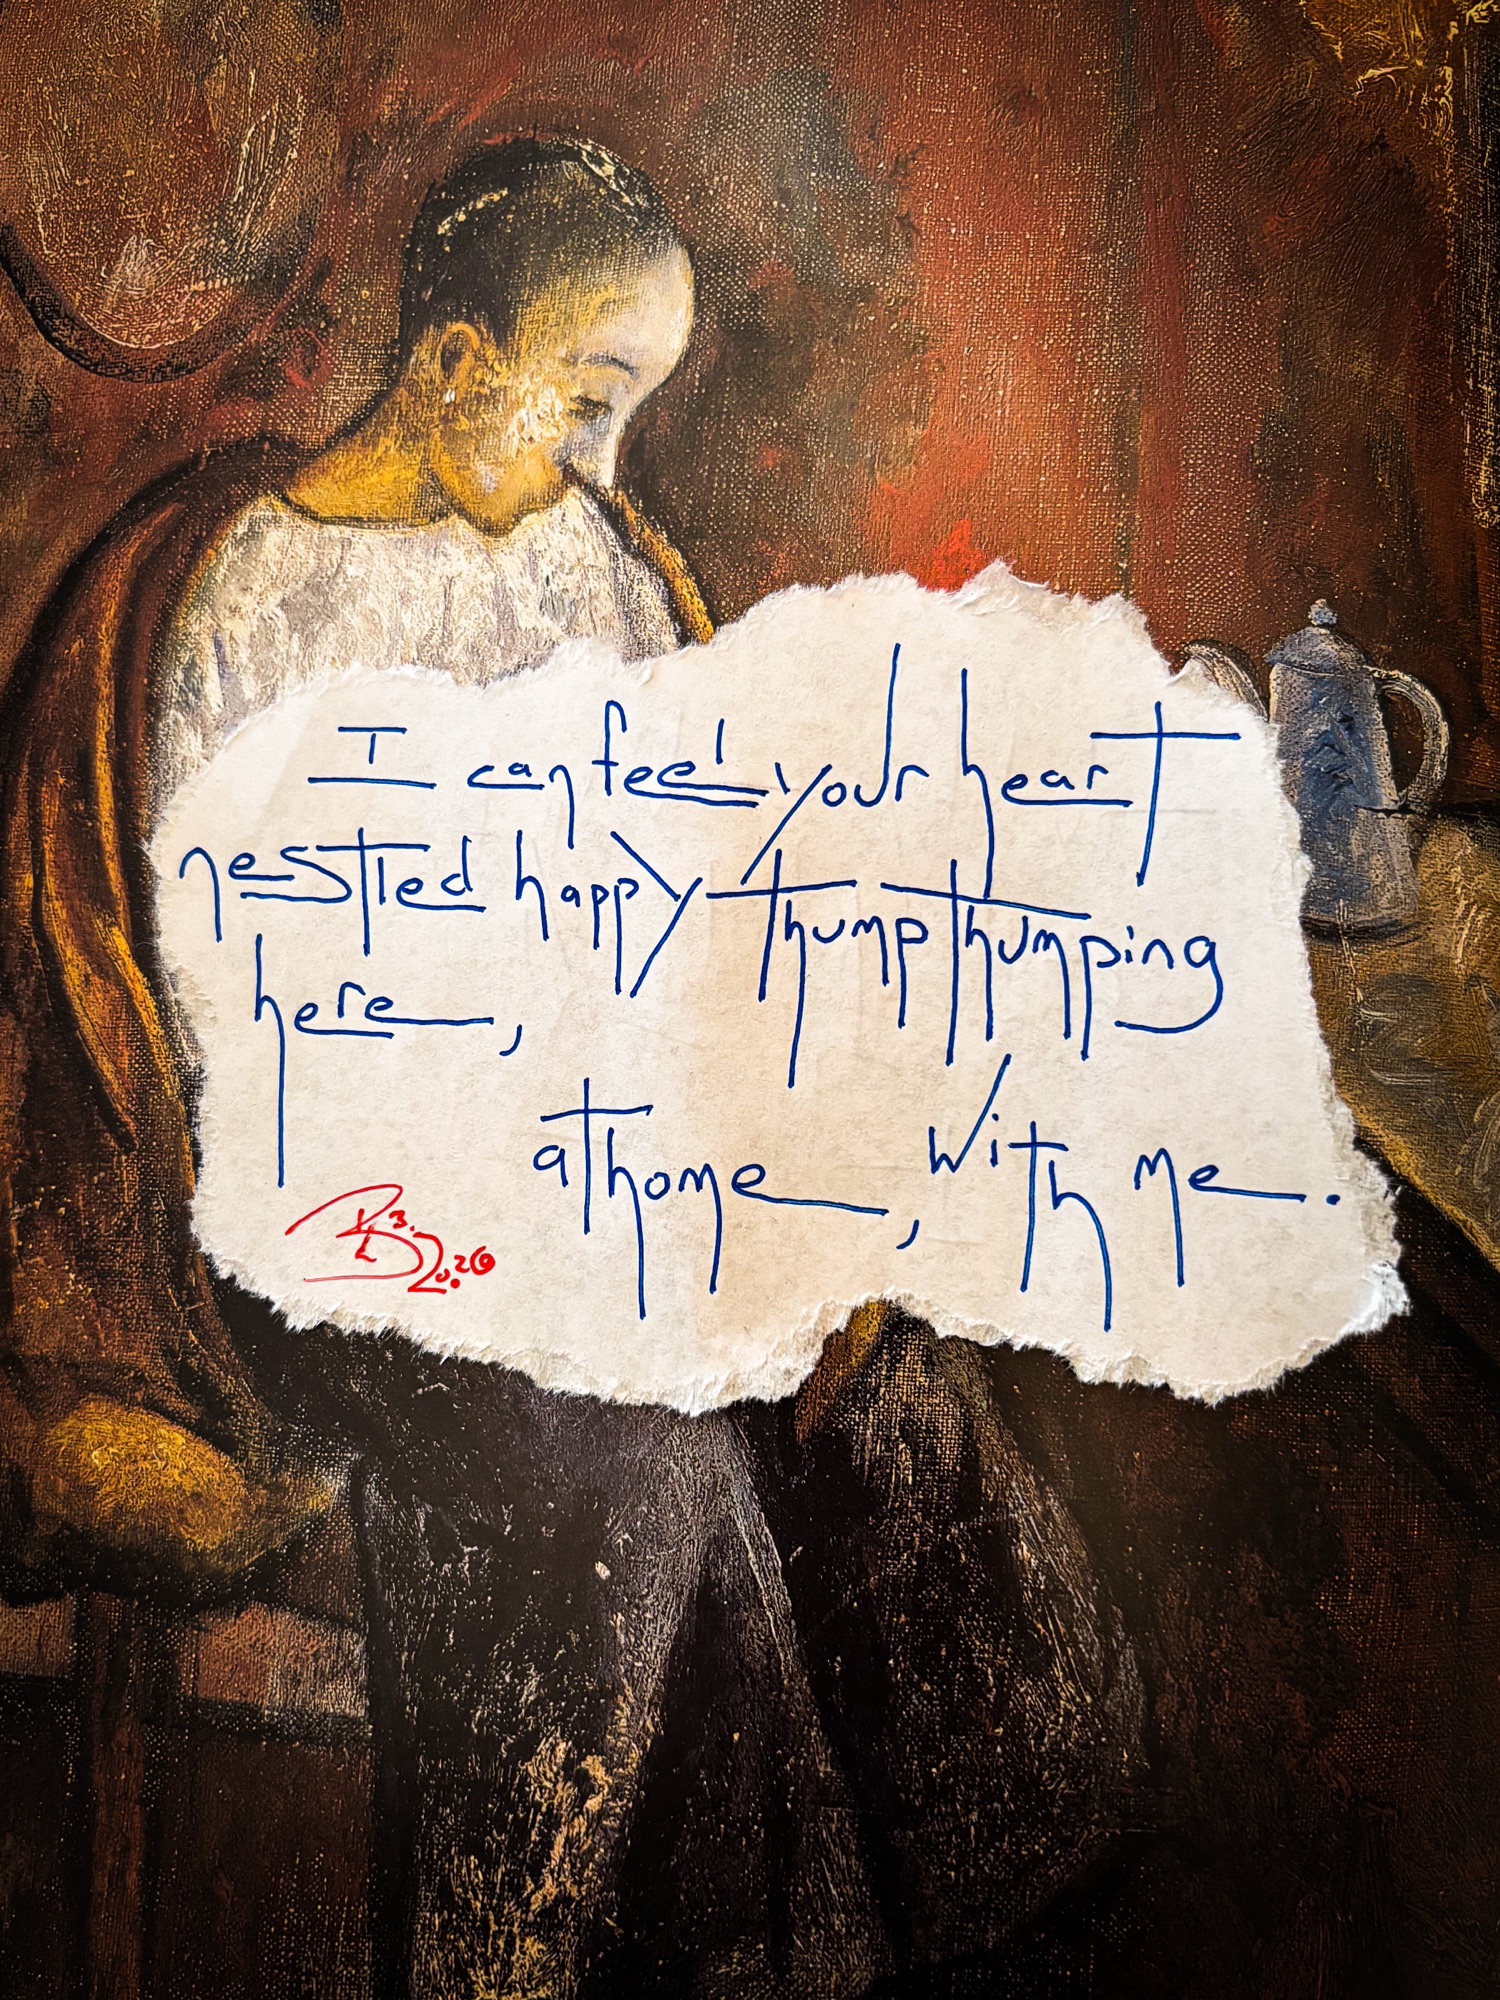 I can feel your heart
nestled happy thump thumping
here,
at home, with me.
3.
2026